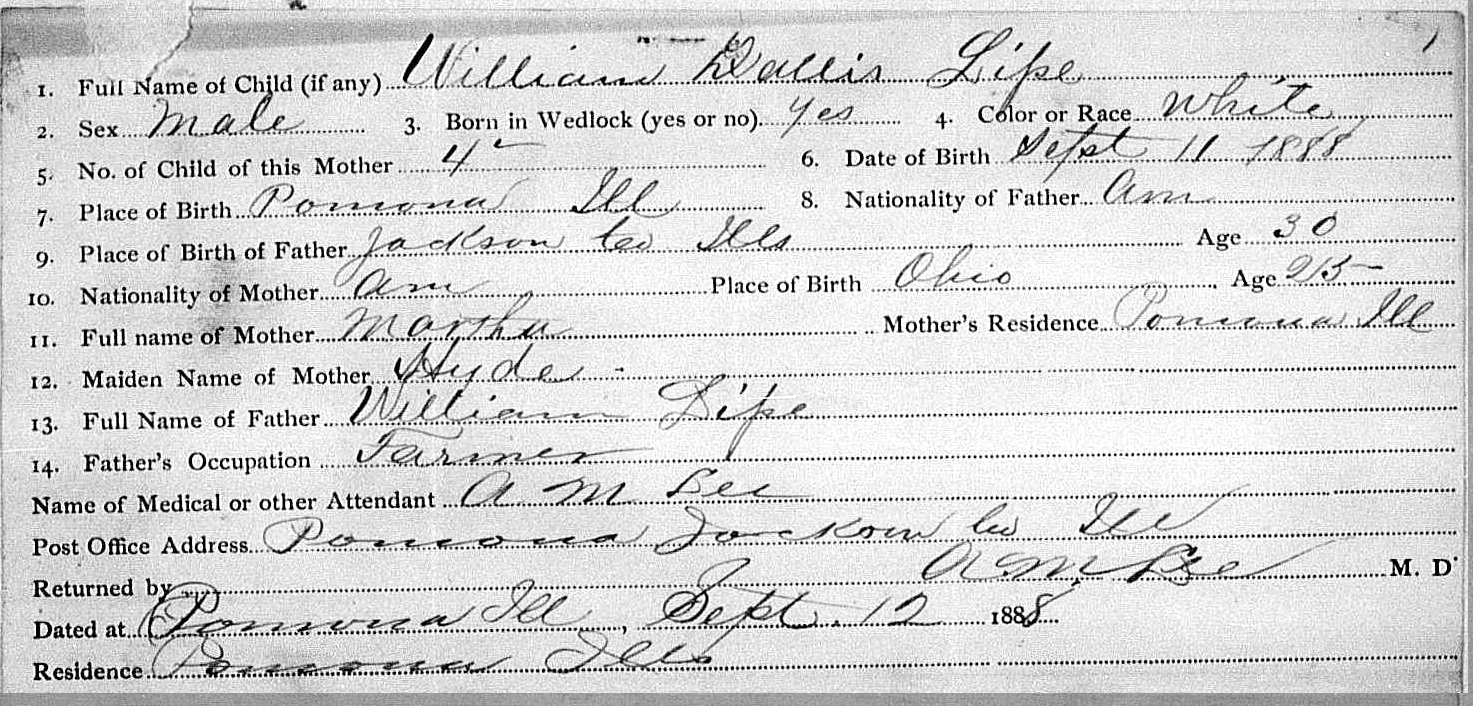 1. Full Name of Child (if any) William Dallis Lipe
2. Sex Male 3. Born in Wedlock (yes or no) Yes 4. Color or Race White
5. No. of Child of this Mother 4 6. Date of Birth Sept 11 1888
7. Place of Birth Pomona Ill 8. Nationality of Father Am
9. Place of Birth of Father Jackson Co Ills Age 30
10. Nationality of Mother Am Place of Birth Ohio Age 25
11. Full name of Mother Martha Mother's Residence Pomona Ill
12. Maiden Name of Mother Hyde
13. Full Name of Father William Lipe
14. Father's Occupation Farmer
Name of Medical or other Attendant A M Lee
Post Office Address Pomona Jackson Co Ill
Returned by A M Lee M. D.
Dated at Pomona Ill, Sept. 12 1888
Residence Pomona Ills